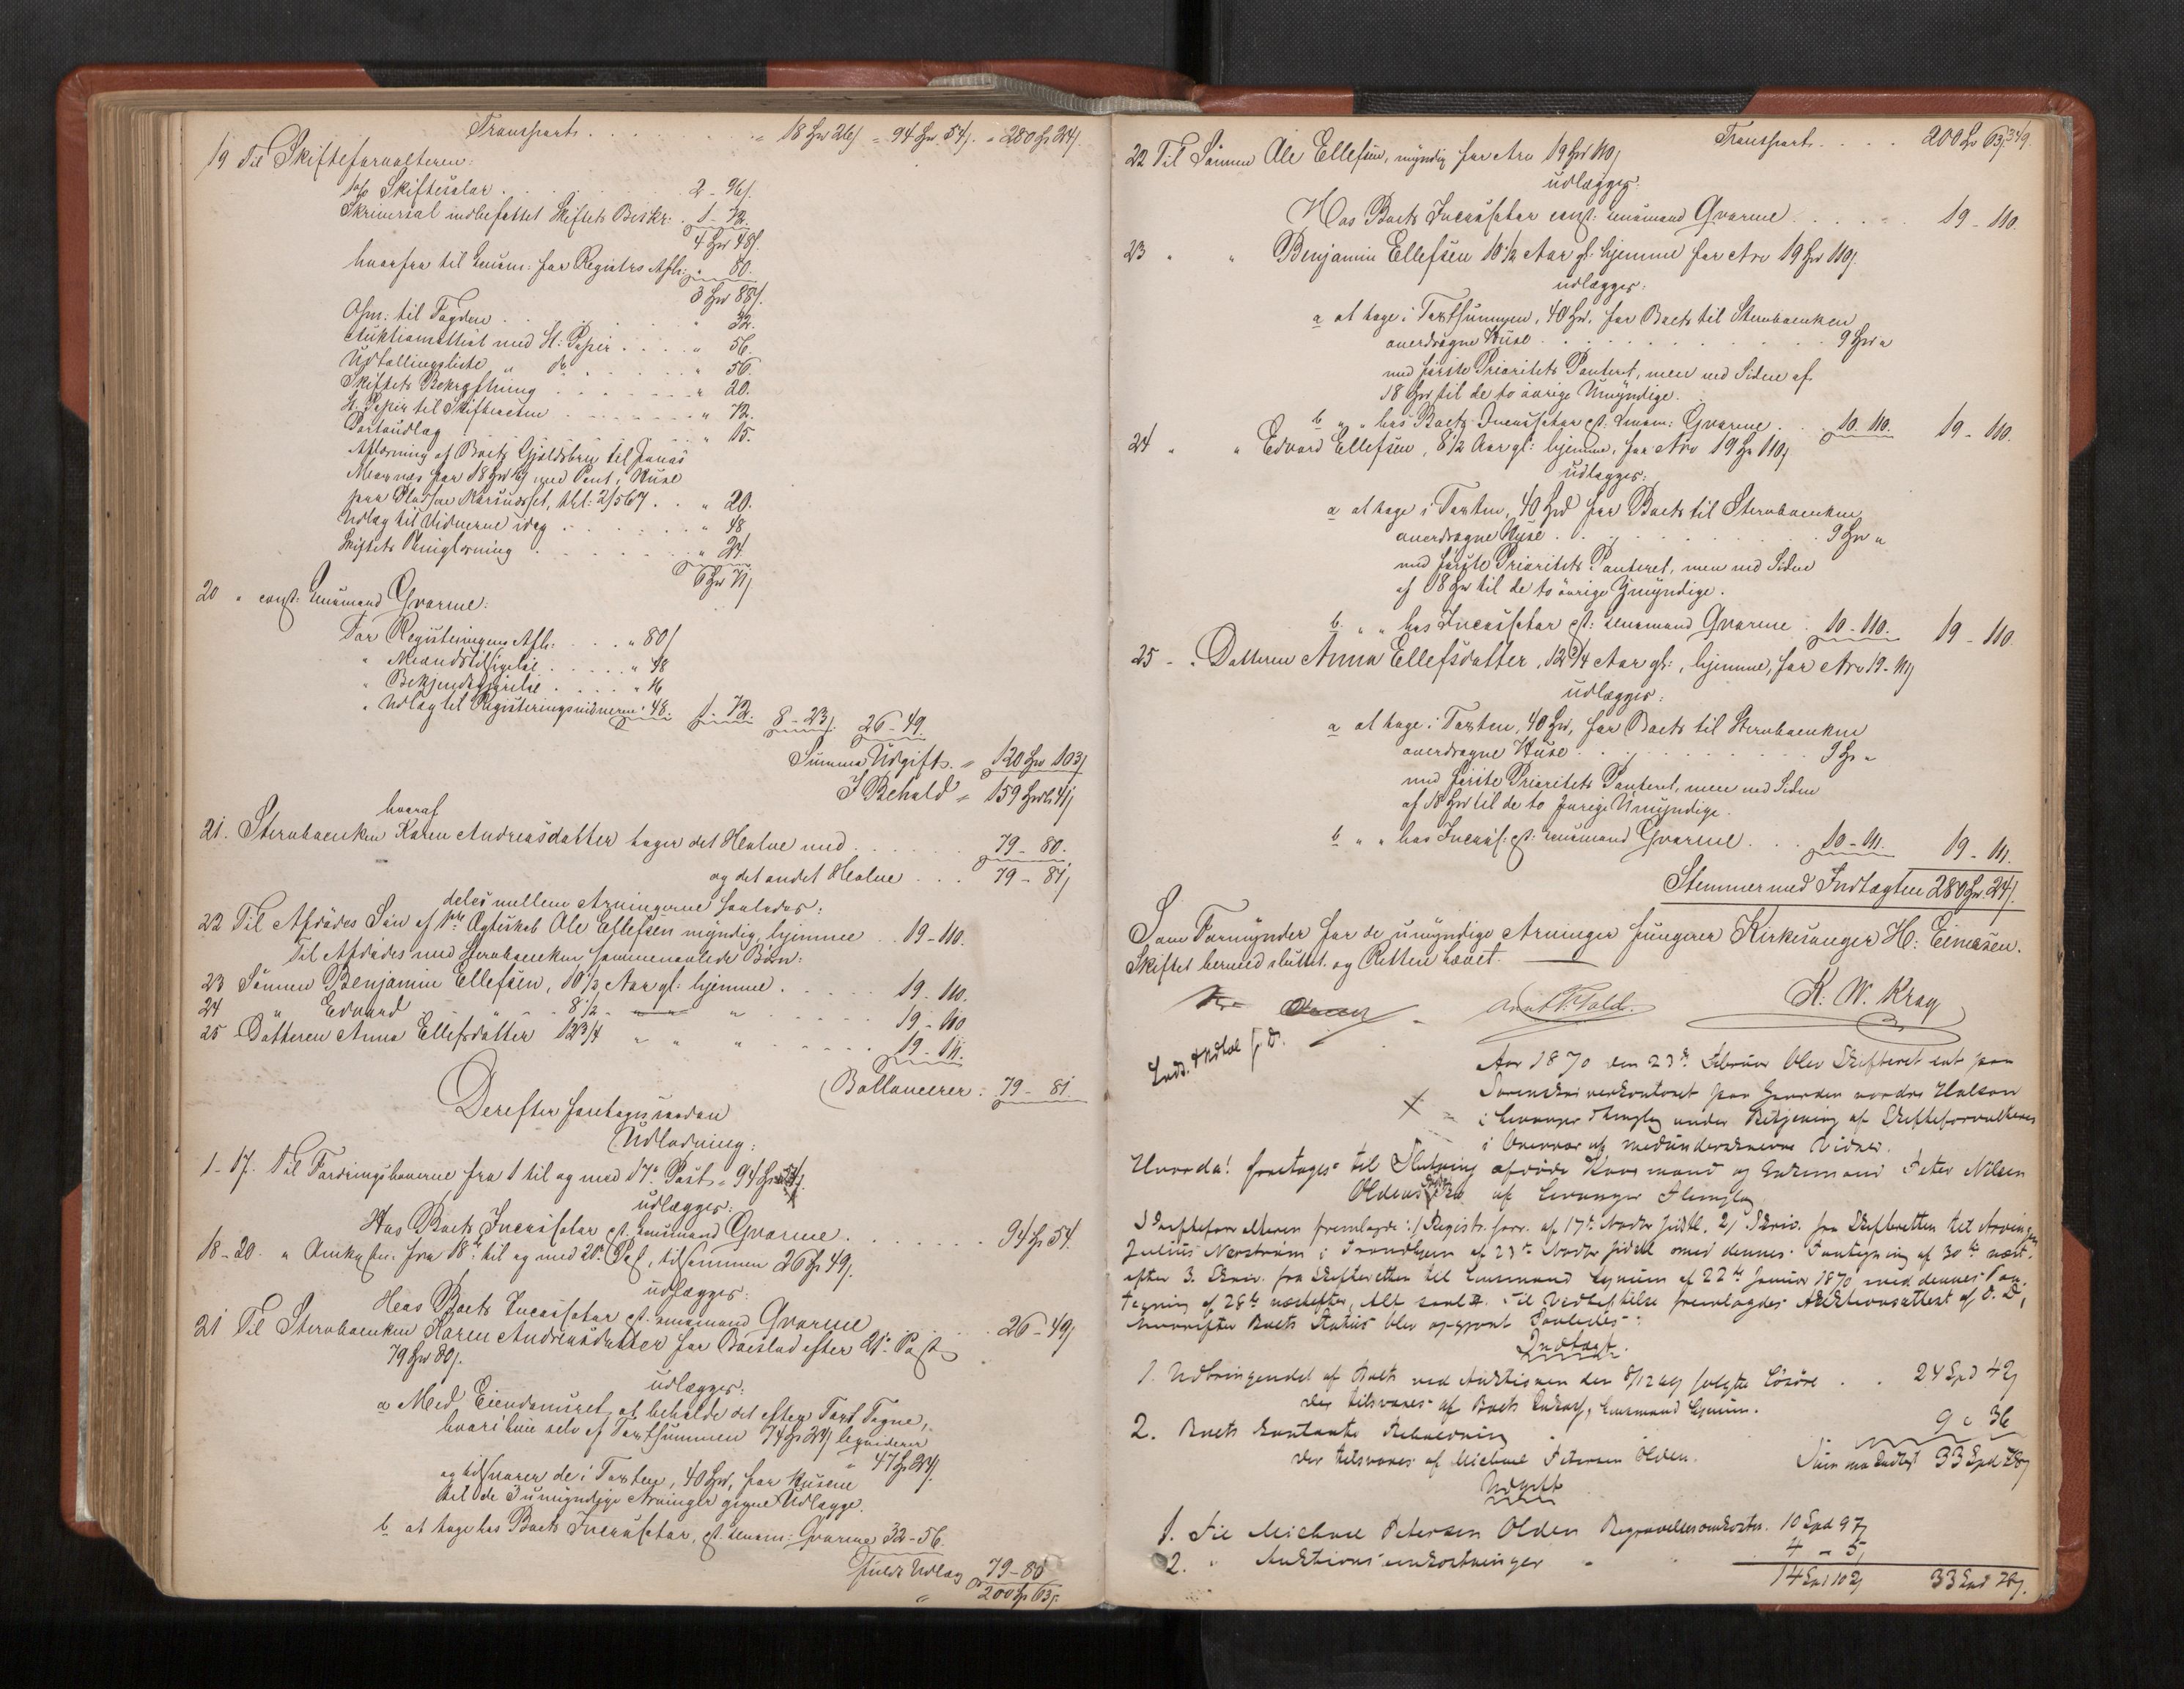 Transport . . . . . . " 18 Spd 26 ß = 94 Spd 54 ß. = 280 Spd 24 ß.
19 Til Skifteforvalteren:
1 % Skiftesalar . . . . 2 - 96 ß.
Skriversal indbefattet Skiftets Beskr: . 1 - 72.
4 Spd 48 ß.
hvorfra til Lensm: for Registrs Afh: " 80.
3 Spd 88 ß.
Opn: til Fogden . . . . " 32.
Auktionsattest med St: Papir . . . . " 56.
Udtallingsliste " do . . . . " 56.
Skiftets Bekræftning . . . . " 20.
St. Papir til Skifteacten . . . . " 72.
Portoudlæg . . . . " 15.
Aflæsning af Boets Gjældsbrev til Jonas
for 18 Spd med Pant i Huse
paa Pladsen . . " 20.
Udlæg til Vidnerne idag . . . . " 48
Skiftets Thinglæsning . . . . " 24.
6 Spd 71 ß
20 " const: Lensmand Gvarme:
For Registeringens Afh: . . . " 80 ß
" Mændstilsigelse . . . . " 48
" Bekjendtgjørelse . . . . " 16
" Udlæg til Registeringsvidnerne " 48. 1 - 72. 8 - 23 ß. 26 - 49.
Summa Udgift = 120 Spd 103 ß
I Behold = 159 Spd 41 ß
hvoraf
21. Stervboenken Karen Andreasdatter tager det Halve med . . . . 79 - 80.
og det andet Halve . . . 79 - 81 ß
deles mellem Arvingerne saaledes:
22 Til Afdødes Søn af 1ste Ægteskab Ole Ellefsen myndig, hjemme . . 19 - 110.
Til Afdødes med Stervboenken sammenavlede Børn:
23 Sønnen Benjamin Ellefsen, 10 1/2 Aar gl: hjemme . . . . 19 - 110.
24 " Edvard . . 8 1/2 " " " . . . . 19 - 110
25 Datteren Anna Ellefsdatter 12 3/4 " " " . . . . 19 - 111.
Ballancerer: 79 - 81.
Derefter foretages saadan
Udlodning:
1 - 17. Til Fordringshaverne fra 1 til og med 17de Post = 94 Spd 54 ß.
udlægges:
Hos Boets Incassator cst. Lensmand Gvarme . . . . 94 Sp 54.
18 - 20. " Omkostn: fra 18de til og med 20de Post, tilsammen 26 Sp 49 ß.
udlægges:
Hos Boets Incassator cst: Lensmand Gvarme . . . . 26 - 49 ß
21 Til Stervboenken Karen Andreasdatter for Boeslod efter 21de Post
79 Spd 80 ß.
udlægges:
a Med Eiendomsret at beholde det efter Taxt Tagne,
hvori hun selv af Taxtsummen 74 Sp 24 ß liqviderer
" 47 Sp 24 ß.
og tilsvarer de i Taxten, 40 Spd, for Husene
til de 3 umyndige Arvinger gjorte Udlægge.
b at tage hos Boets Incassator, cst. Lensm: Gvarme 32 - 56.
fuldt Udlæg 79 - 80
" 200 Sp 103 ß.
349.
Transport . . . . 200 Sp 103 ß
22 Til Sønnen Ole Ellefsen, myndig for Arv 19 Spd 110 ß
udlægges:
Hos Boets Incassator const: Lensmand Gvarme . . . . 19 - 110.
23 " " Benjamin Ellefsen 10 1/2 Aar gl: hjemme for Arv 19 Spd 110 ß.
udlægges:
a at tage i Taxtsummen, 40 Spd, for Boets til Stervboenken
overdragne Huse . . . . 9 Spd "
med første Prioritets Panteret, men ved Siden af
18 Spd til de to øvrige Umyndige.
b " " hos Boets Incassator cst: Lensm: Gvarme . . 10. 110. 19 - 110.
24 " " Edvard Ellefsen, 8 1/2 Aar gl: hjemme, for Arv 19 Sp 110 ß
udlægges:
a at tage i Taxten, 40 Spd for Boets til Stervboenken
overdragne Huse . . . . 9 Spd "
med første Prioritets Panteret, men ved Siden
af 18 Spd til de to øvrige Umyndige.
b " " hos Incassator cst: Lensmand Gvarme . 10 - 110. 19 - 110.
25 - " Datteren Anna Ellefsdatter, 12 3/4 Aar gl:, hjemme, for Arv 19 - 111 ß
udlægges:
a at tage i Taxten, 40 Spd, for Boets til Stervboenken
overdragne Huse . . . . 9 Sp "
med første Prioritets Panteret, men ved Siden
af 18 Spd til de to øvrige Umyndige.
b " " hos Incass: cst: Lensmand Gvarme . . . 10 - 111. 19 - 111.
Stemmer med Indtægten 280 Spd 24 ß.
Som Formynder for de umyndige Arvinger fungerer Kirkesanger H: Einasen.
Skiftet hermed sluttet og Retten hævet.
K. W. Krag
Aar 1870 den 23de Februar blev Skifteret sat paa
Sorenskriverkontoret paa Gaarden nordre Halsan
i Levanger Thinglag under Betjening af Skifteforvalteren
i Overvær af medunderskrevne Vidner.
Hvorda! foretages til Slutning afdøde Huusmand og Enkemand Peter Nilsen
Olden af Levanger Thinglag
Skifteforvalteren fremlagde: 1/ Registr. forr. af 17de Novbr sidstl. 2/ Skriv. fra Skifteretten til Arvingen
Julius Nerstrøm i Trondhjem af 23de Novbr sidstl med dennes Paategning af 30te næst-
efter 3. Skriv. fra Skifteretten til Lensmand Lynum af 22de Januar 1870 med dennes Paa-
tegning af 28de næstefter, Alt Til Vedheftelse fremlagdes Auktionsattest af D. D,
hvorefter Boets Status blev opgjort saaledes:
Indtægt.
1. Udbringendet af Boets ved Auktionen den 8/12 69 solgte Løsøre . . 24 Spd 42 ß
der tilsvares af Boets Inkass, Lensmand Lynum.
2. Boets kontante Beholdning 9 " 36
der tilsvares af Michael Petersen Olden. Summa Indtægt 33 Spd 78 ß
Udgift
1. Til Michael Petersen Olden Begravelsesomkostn. 10 Spd 97 ß
2. " Auktionsomkostninger " 4 - 5 ß
14 Spd 102 ß 33 Spd 78 ß.